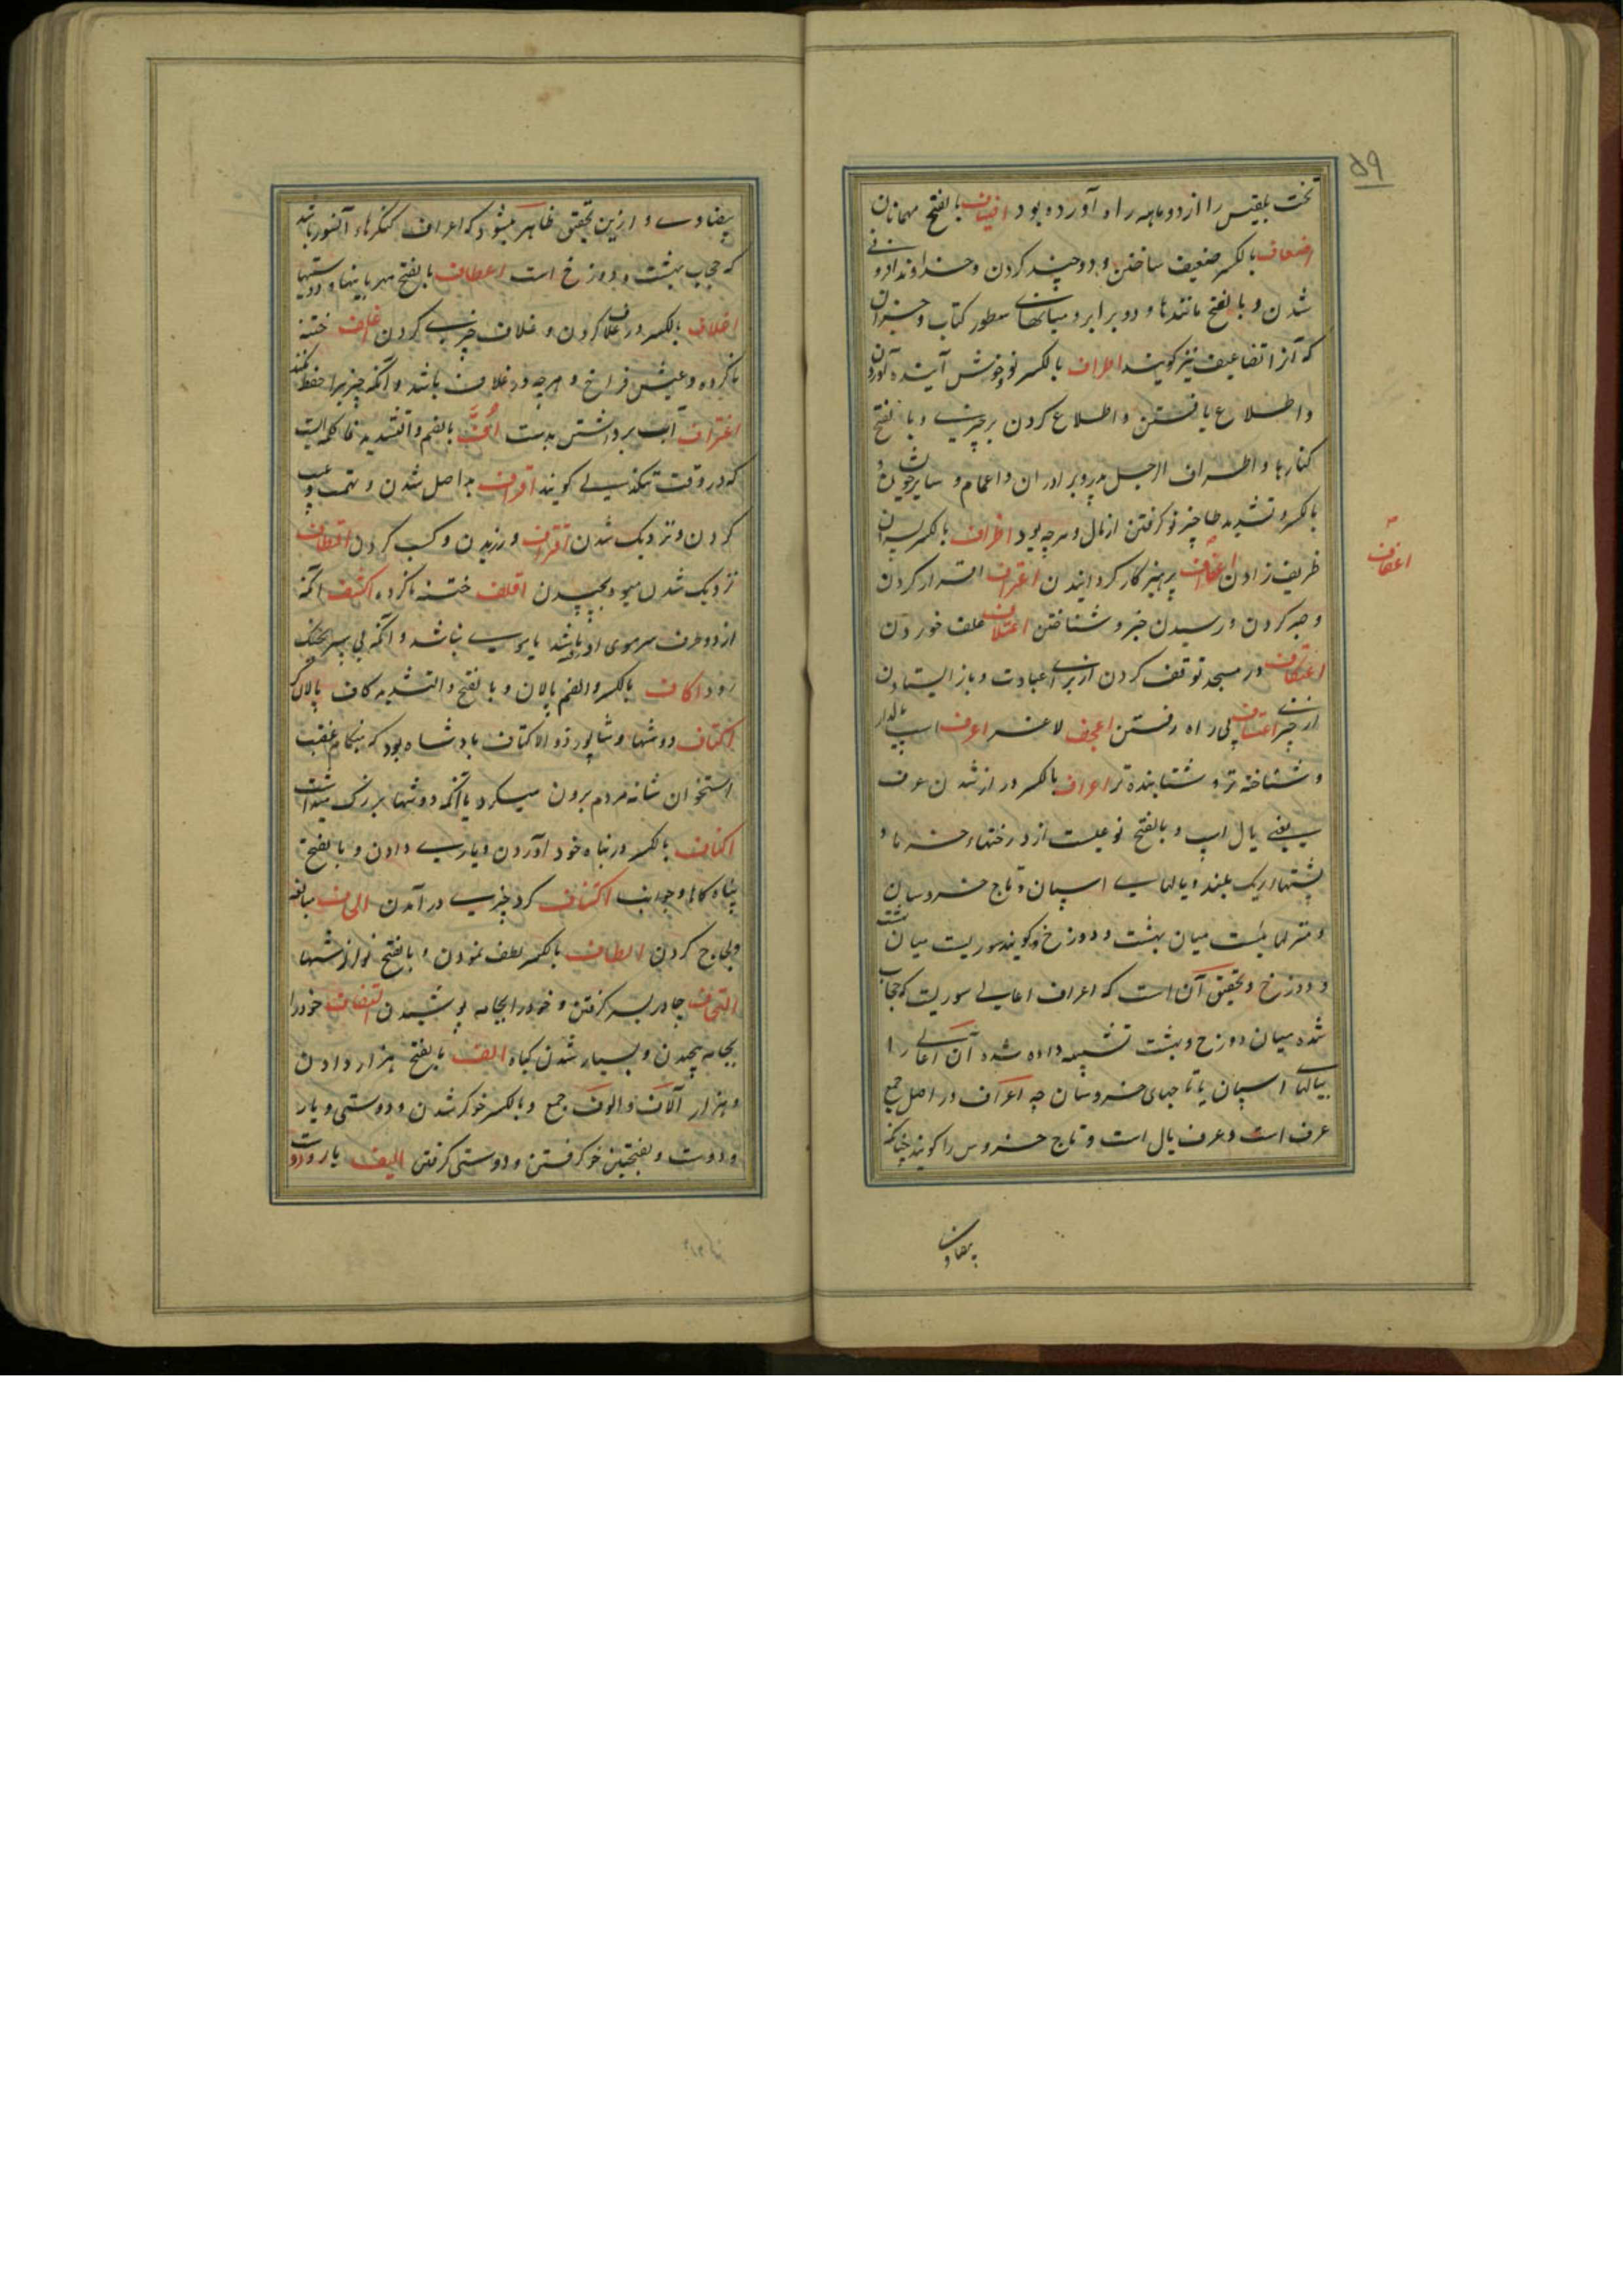 ۵۹
تخت بلقیس را از دو ماهه راه آورده بود اضیاف بالفتح مهمانان
اضعاف بالکسر ضعیف ساختن و دو چند کردن و خداوند افزونی
شدن و بالفتح مانندها و دو برابر و میانهای سطور کتاب و جز آن
که آنرا تضاعیف نیز گویند اطراف بالکسر نو و خوش آینده آوردن
و اطلاع یافتن و اطلاع کردن بر چیزی و بالفتح
کنارها و اطراف الرجل پدر و برادران و اعمام و سایر خویشان و
بالکسر و تشدید طا چیز نو گرفتن از مال و هر چه بود اظراف بالکسر پسران
ظریف زادن اعفاف پرهیزکار گردانیدن اعتراف اقرار کردن
و صبر کردن و رسیدن خبر و شناختن اعتلاف علف خوردن
اعتکاف در مسجد توقف کردن از برای عبادت و باز ایستادن
از چیزی اعتساف بی راه رفتن اعجف لاغر اعرف اسپ یالدار
و شناخته تر و شتابنده تر اعراف بالکسر دراز شدن عرف
یعنی یال اسپ و بالفتح نوعیست از درختهاء خرما و
پشتهاء ریک بلند و یالهای اسپان و تاج خروسان
و منزلهایست میان بهشت و دوزخ و گویند سوریست میان بهشت
و دوزخ و تحقیق آن است که اعراف اعالی سوریست که حجاب
شده میان دوزخ و بهشت تشبیه داده شده آن اعالی را
بیالهای اسپان یا تاجهای خروسان چه اعراف در اصل جمع
عرف است و عرف یال است و تاج خروس را گویند چنانکه
اعفاف
بیضاوی
بیضاوی و ازین تحقیق ظاهر میشود که اعراف کنگرهاء آنسور باشد
که حجاب بهشت و دوزخ است اعطاف بالفتح مهربانیها و دوستیها
اغلاف بالکسر در غلاف کردن و غلاف چیزی کردن اغلف ختنه
ناکرده و عیش فراخ و هر چه در غلاف باشد و آنکه چیزیرا حفظ نکند
اغتراف آب برداشتن بدست اُفّ بالضم و التشدید فا کلمه ایست
که در وقت تنگدلی گویند اقراف بد اصل شدن و تهمت و عیب
کردن و نزدیک شدن اقتراف ورزیدن و کسب کردن اقتطاف
نزدیک شدن میوه بچیدن اقلف ختنه ناکرده اکشف آنکه
از دو طرف سر موی او باشد یا موی نباشد و آنکه بی سپر بجنگ
رود اکاف بالکسر و الضم پالان و بالفتح و التشدید کاف پالان گر
اکتاف دوشها و شاپور ذو الاکتاف پادشاه بود که بهنگام غضب
استخوان شانه مردم برون میکرد یا آنکه دوشها بزرگ میداشت
اکناف بالکسر در پناه خود آوردن و یاری دادن و بالفتح
پناه گاهها و جوانب اکتناف گرد چیزی در آمدن الحاف مبالغه
و لجاج کردن الطاف بالکسر لطف نمودن و بالفتح نوازشها
التحاف چادر بسر گرفتن و خود را بجامه پوشیدن التفاف خود را
بجامه پیچیدن و بسیار شدن گیاه الف بالفتح هزار دادن
و هزار آلاف و الوف جمع و بالکسر خوگر شدن و دوستی و یار
و دوست و بفتحتین خو گرفتن و دوستی گرفتن الیف یار و دوست